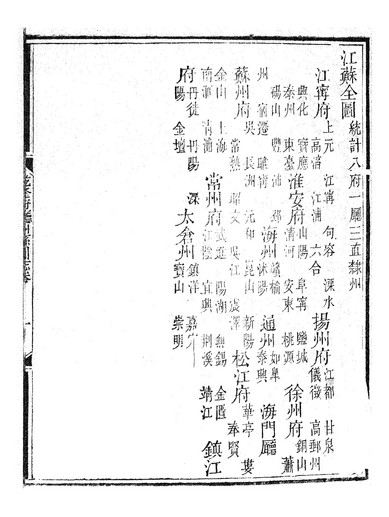 江蘇全圖 統計八府一廳三直隸州
江寧府 上元 江寧 句容 溧水 高淳 江浦 六合 揚州府 江都 甘泉 儀徵 高郵州
興化 寶應 泰州 東臺 淮安府 山陽 阜寧 鹽城 清河 安東 桃源 徐州府 銅山 蕭
碭山 豐 沛 邳州 宿遷 睢寧 海州 贛榆 沭陽 通州 如皋 泰興 海門廳
蘇州府 吳 長洲 元和 崑山 新陽 常熟 昭文 吳江 震澤 松江府 華亭 婁 奉賢
金山 上海 南滙 青浦 常州府 武進 陽湖 無錫 金匱 江陰 宜興 荊溪 靖江 鎮江
府 丹徒 丹陽 溧陽 金壇 太倉州 鎮洋 嘉定 寶山 崇明